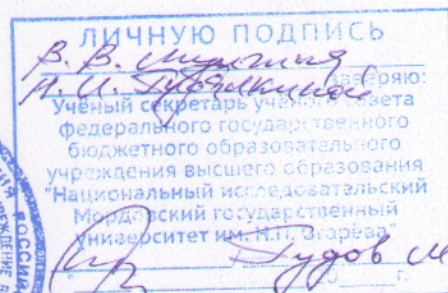 ЛИЧНУЮ ПОДПИСЬ
В. В.
Н. И.
заверяю:
Учёный секретарь учёного совета
федерального государственного
бюджетного образовательного
учреждения высшего образования
"Национальный исследовательский
Мордовский государственный
университет им. Н.П. Огарёва"
Гудов
г.